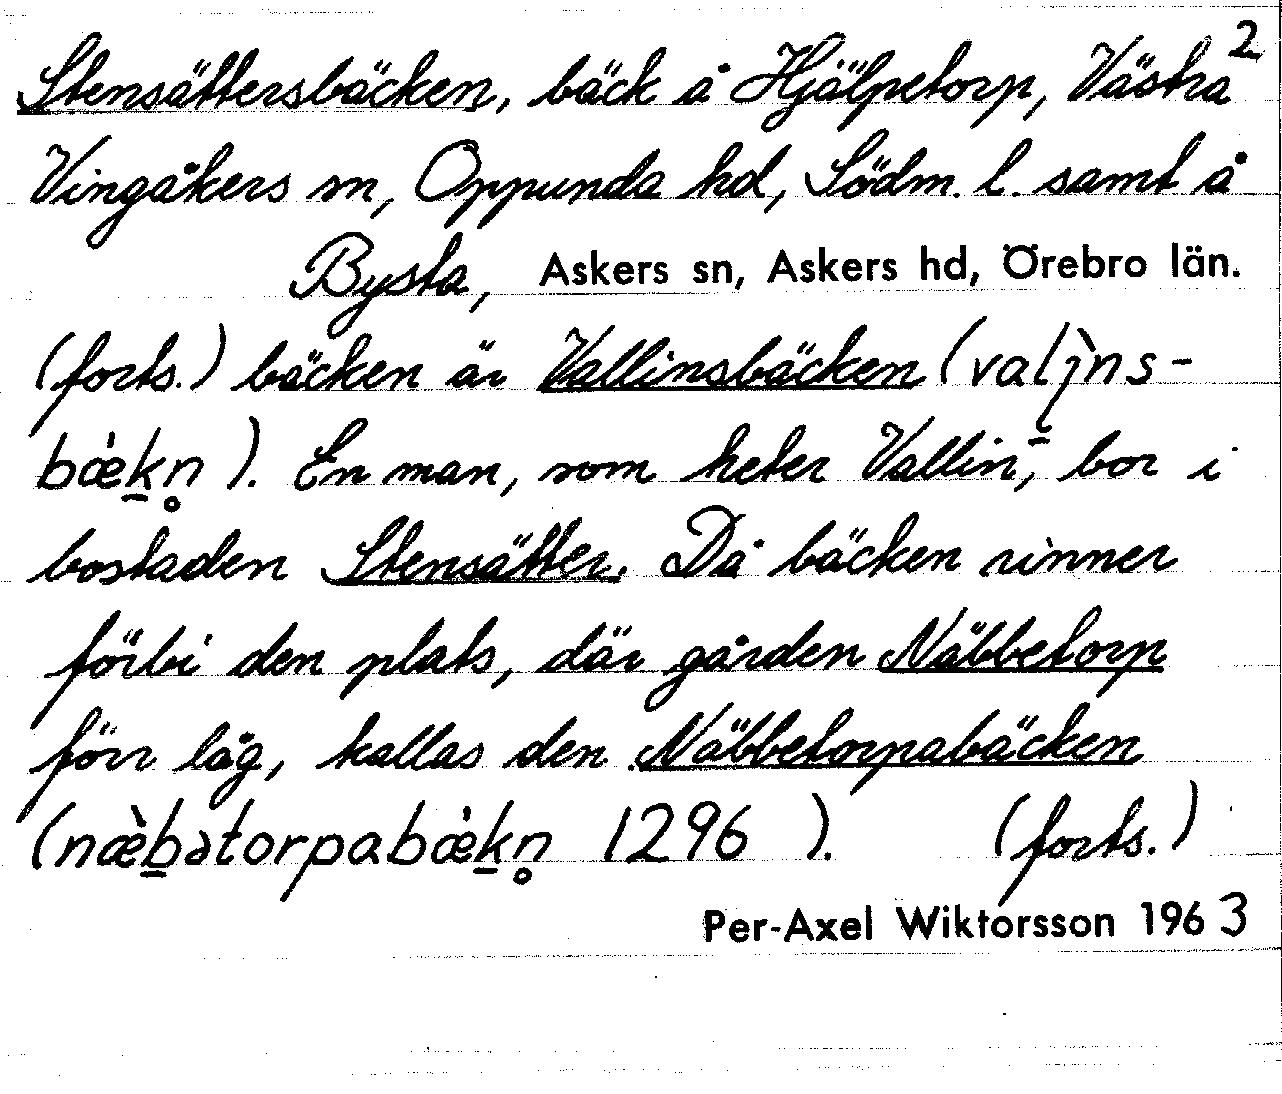 2
Stensättersbäcken, bäck å Hjälpetorp, Västra
Vingåkers sn, Oppunda hd, Södm. l. samt å
Bysta, Askers sn, Askers hd, Örebro län.
(forts.) bäcken är Vallinsbäcken (valı̀ns-
bæ̀kn̥). En man, som heter Vallin, bor i
bostaden Stensätter. Då bäcken rinner
förbi den plats, där gården Näbbetorp
förr låg, kallas den Näbbetorpabäcken
(næ̀bətorpabæ̀kn̥ 1296 ). (forts.)
Per-Axel Wiktorsson 1963